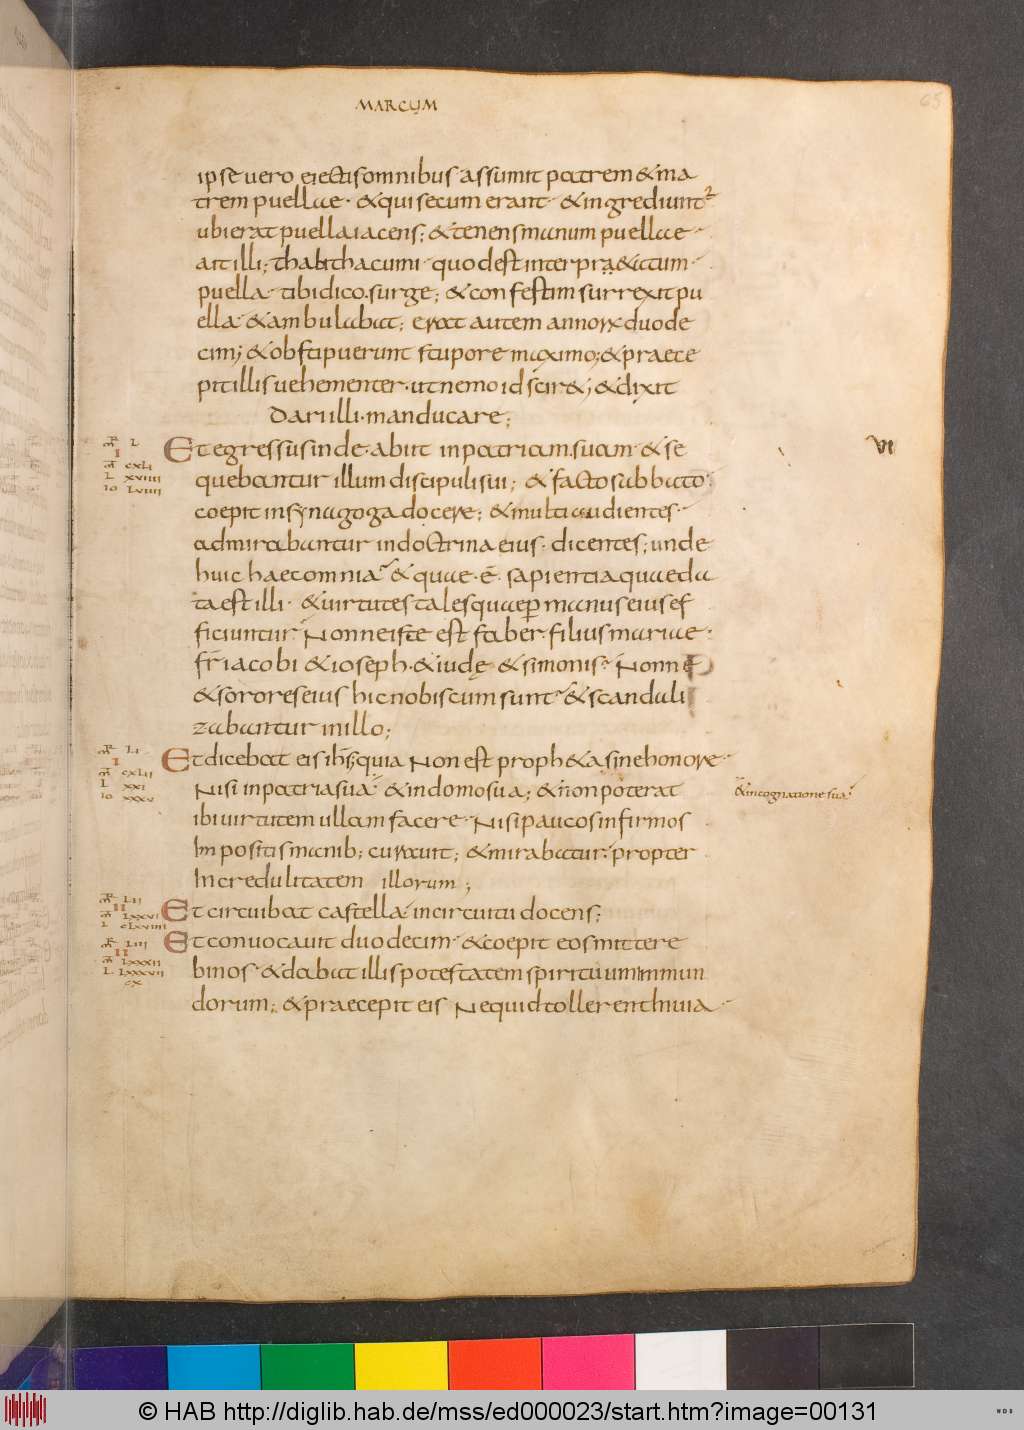 MARCUM
65
ipse uero eiectis omnibus assumit patrem & ma
trem puellae · & qui secum erant · & ingrediunt
ubi erat puella iacens; & tenens manum puellae ·
ait illi; thabitha cumi · quod est interpraetatum ·
puella tibi dico. surge; & confestim surrexit pu
ella & ambulabat; erat autem annorx duode
cim; & obstipuerunt stupore maximo; & praece
pit illis uehementer · ut nemo id scir&; & dixit
Dari illi · manducare;
mr L
I
mt cxLi
L xviiii
io Lviiii
Et egressus inde · abiit in patriam. suam · & se
VI
quebantur illum discipuli sui; & facto sabbato ·
coepit in synagoga docere; & multi audientes ·
admirabantur in doctrina eius · dicentes; unde
huic haec omnia · & quae · ē · sapientia quae da
ta est illi · & uirtutes tales quae p manus eius ef
ficiuntur Nonne iste est faber · filius mariae ·
fr iacobi & ioseph · & iudę & simonis · Nonne
& sorores eius hic nobiscum sunt & scandali
zabantur in illo;
mr Li
I
mt cxLii
L xxi
io xxxv
Et dicebat eis ihs; quia Non est proph&a sine honore ·
Nisi in patria sua & in domo sua; & non poterat
& in cognatione sua
ibi uirtutem ullam facere · Nisi paucos infirmos
Impositis manib; curauit; & mirabatur · propter
Incredulitatem illorum;
mr Lii
II
mt Lxxvi
L cLxviiii
Et circuibat castella in circuitu docens;
mr Liii
II
mt Lxxxii
L Lxxxvii
cx
Et conuocauit duodecim · & coepit eos mittere
binos · & dabat illis potestatem spirituum inmun
dorum; & praecepit eis Ne quid tollerent in uia ·
© HAB http://diglib.hab.de/mss/ed000023/start.htm?image=00131
WDB